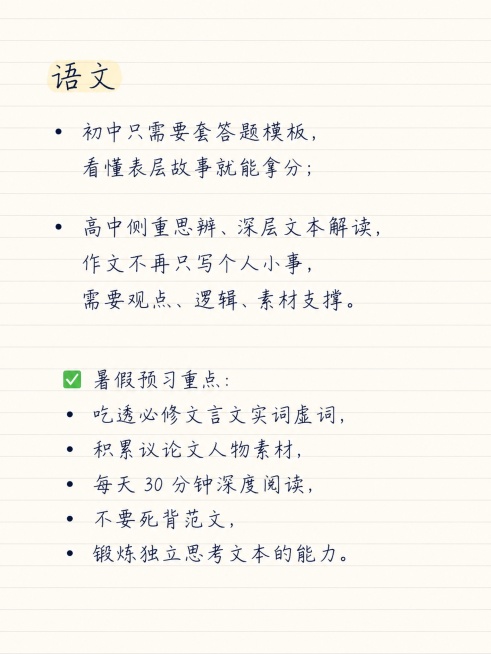 语文
• 初中只需要套答题模板，
看懂表层故事就能拿分；
• 高中侧重思辨、深层文本解读，
作文不再只写个人小事，
需要观点、逻辑、素材支撑。
✅ 暑假预习重点：
• 吃透必修文言文实词虚词，
• 积累议论文人物素材，
• 每天 30 分钟深度阅读，
• 不要死背范文，
• 锻炼独立思考文本的能力。